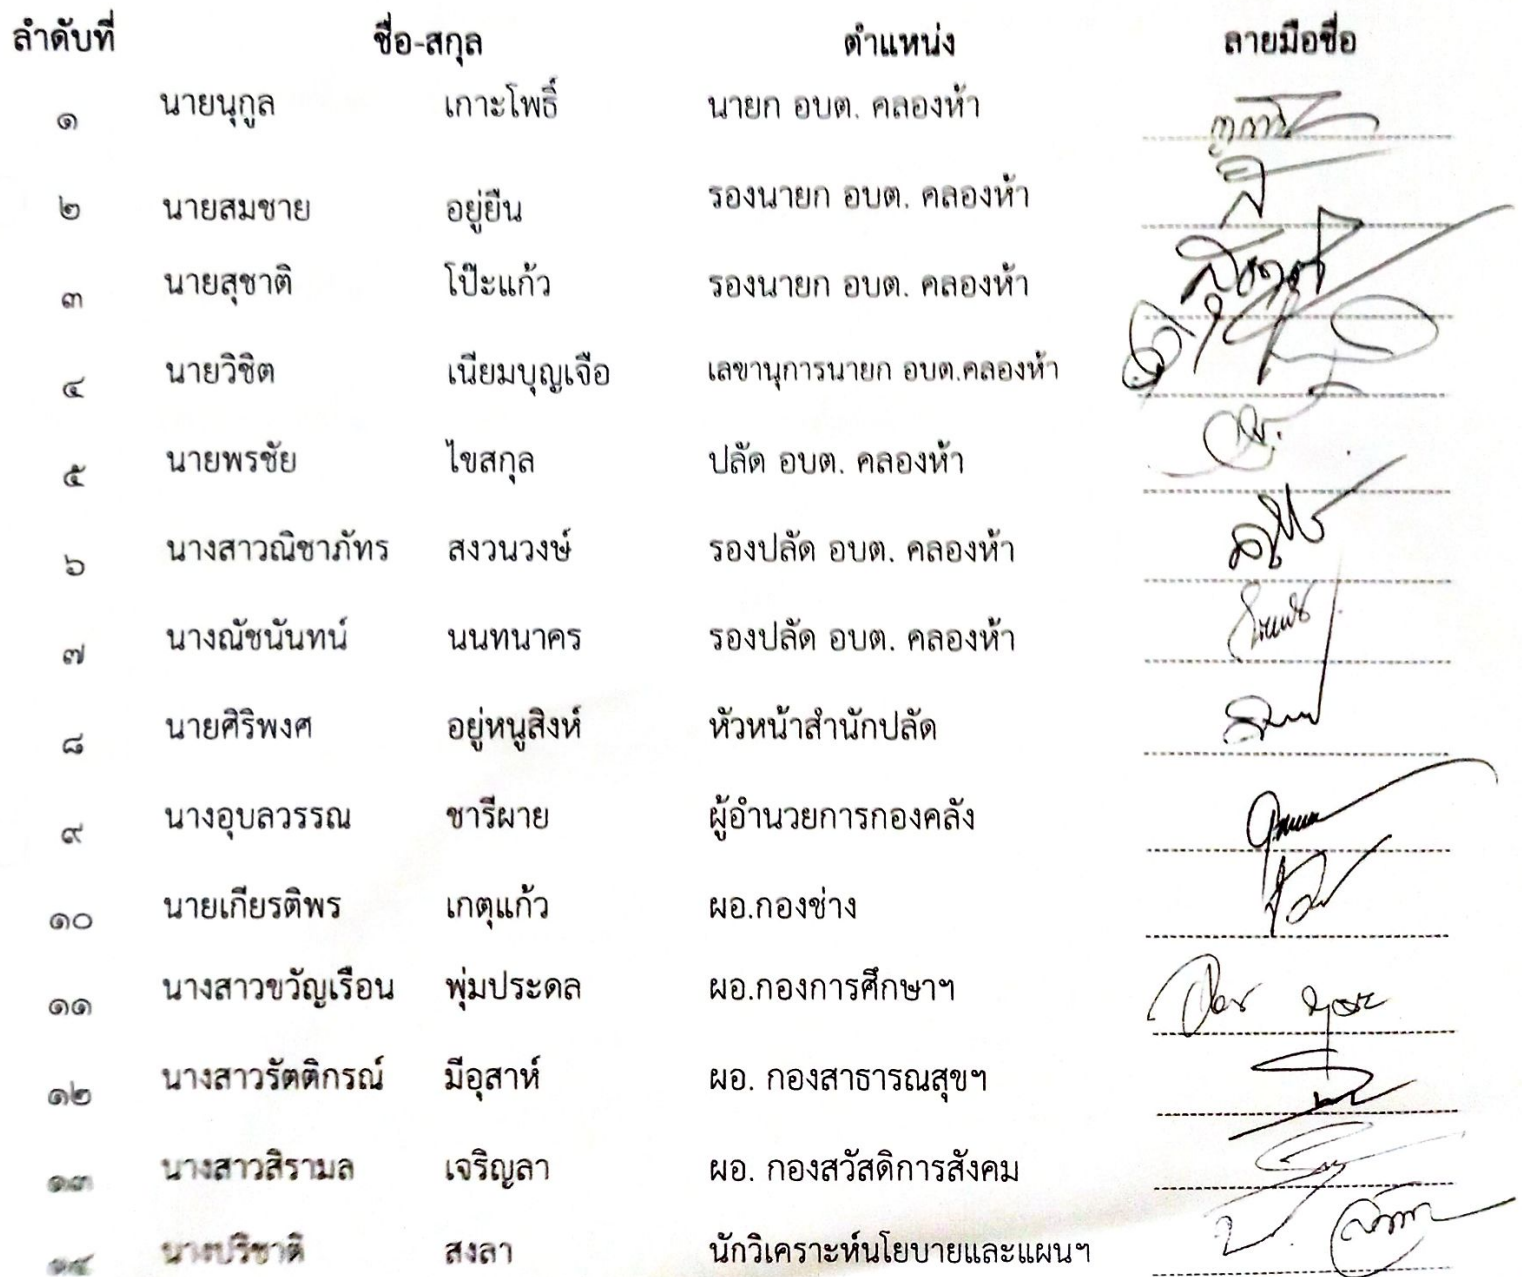 ลำดับที่ ชื่อ-สกุล ตำแหน่ง ลายมือชื่อ
๑ นายนุกูล เกาะโพธิ์ นายก อบต. คลองห้า
๒ นายสมชาย อยู่ยืน รองนายก อบต. คลองห้า
๓ นายสุชาติ โป๊ะแก้ว รองนายก อบต. คลองห้า
๔ นายวิชิต เนียมบุญเจือ เลขานุการนายก อบต.คลองห้า
๕ นายพรชัย ไขสกุล ปลัด อบต. คลองห้า
๖ นางสาวณิชาภัทร สงวนวงษ์ รองปลัด อบต. คลองห้า
๗ นางณัชนันทน์ นนทนาคร รองปลัด อบต. คลองห้า
๘ นายศิริพงศ อยู่หนูสิงห์ หัวหน้าสำนักปลัด
๙ นางอุบลวรรณ ชารีผาย ผู้อำนวยการกองคลัง
๑๐ นายเกียรติพร เกตุแก้ว ผอ.กองช่าง
๑๑ นางสาวขวัญเรือน พุ่มประดล ผอ.กองการศึกษาฯ
๑๒ นางสาวรัตติกรณ์ มีอุสาห์ ผอ. กองสาธารณสุขฯ
๑๓ นางสาวสิรามล เจริญลา ผอ. กองสวัสดิการสังคม
๑๔ นางปริชาติ สงลา นักวิเคราะห์นโยบายและแผนฯ